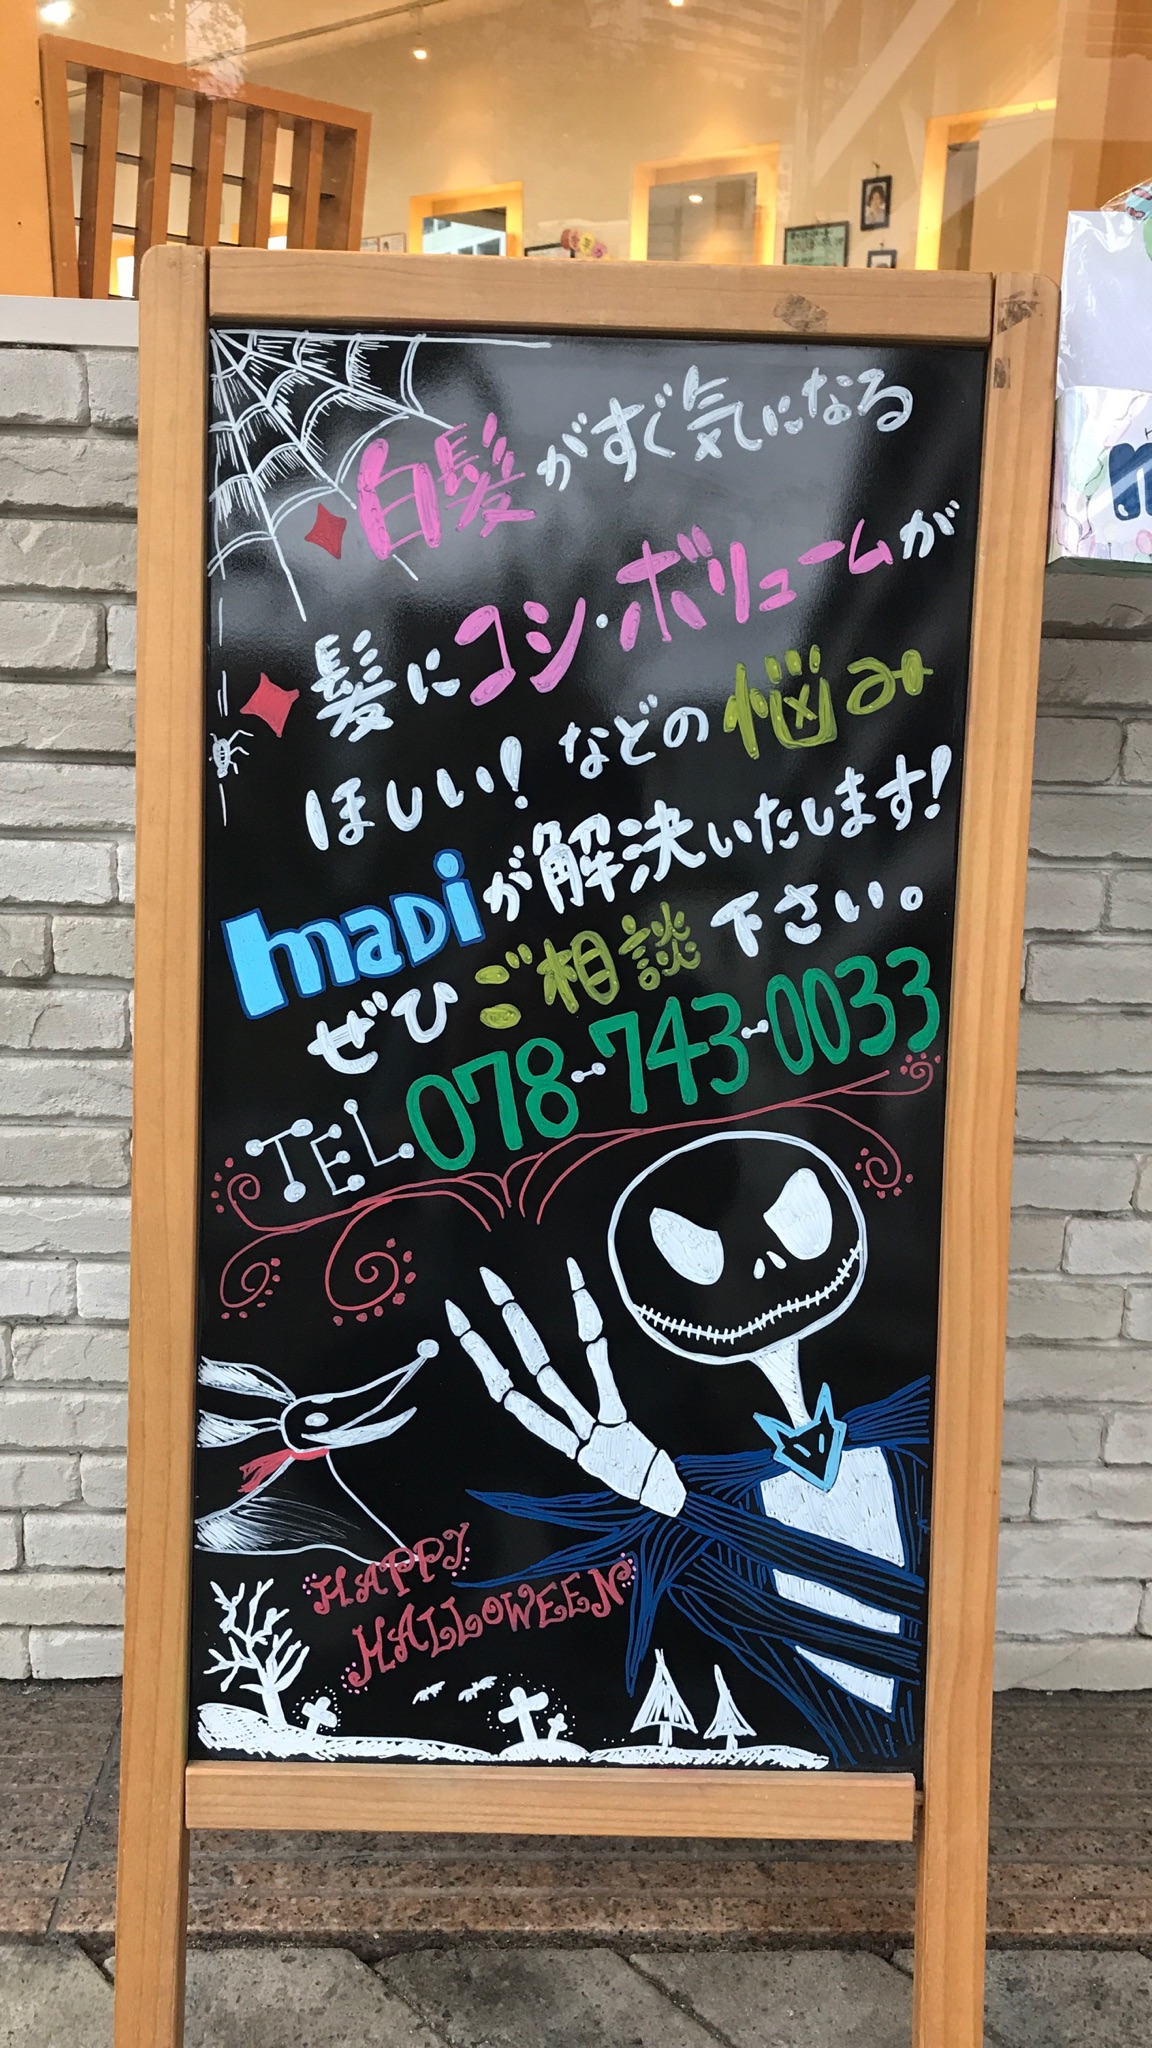 白髪がすぐ気になる
髪にコシ・ボリュームが
ほしい！などの悩み
maDiが解決いたします！
ぜひご相談下さい。
TEL 078-743-0033
HAPPY
HALLOWEEN